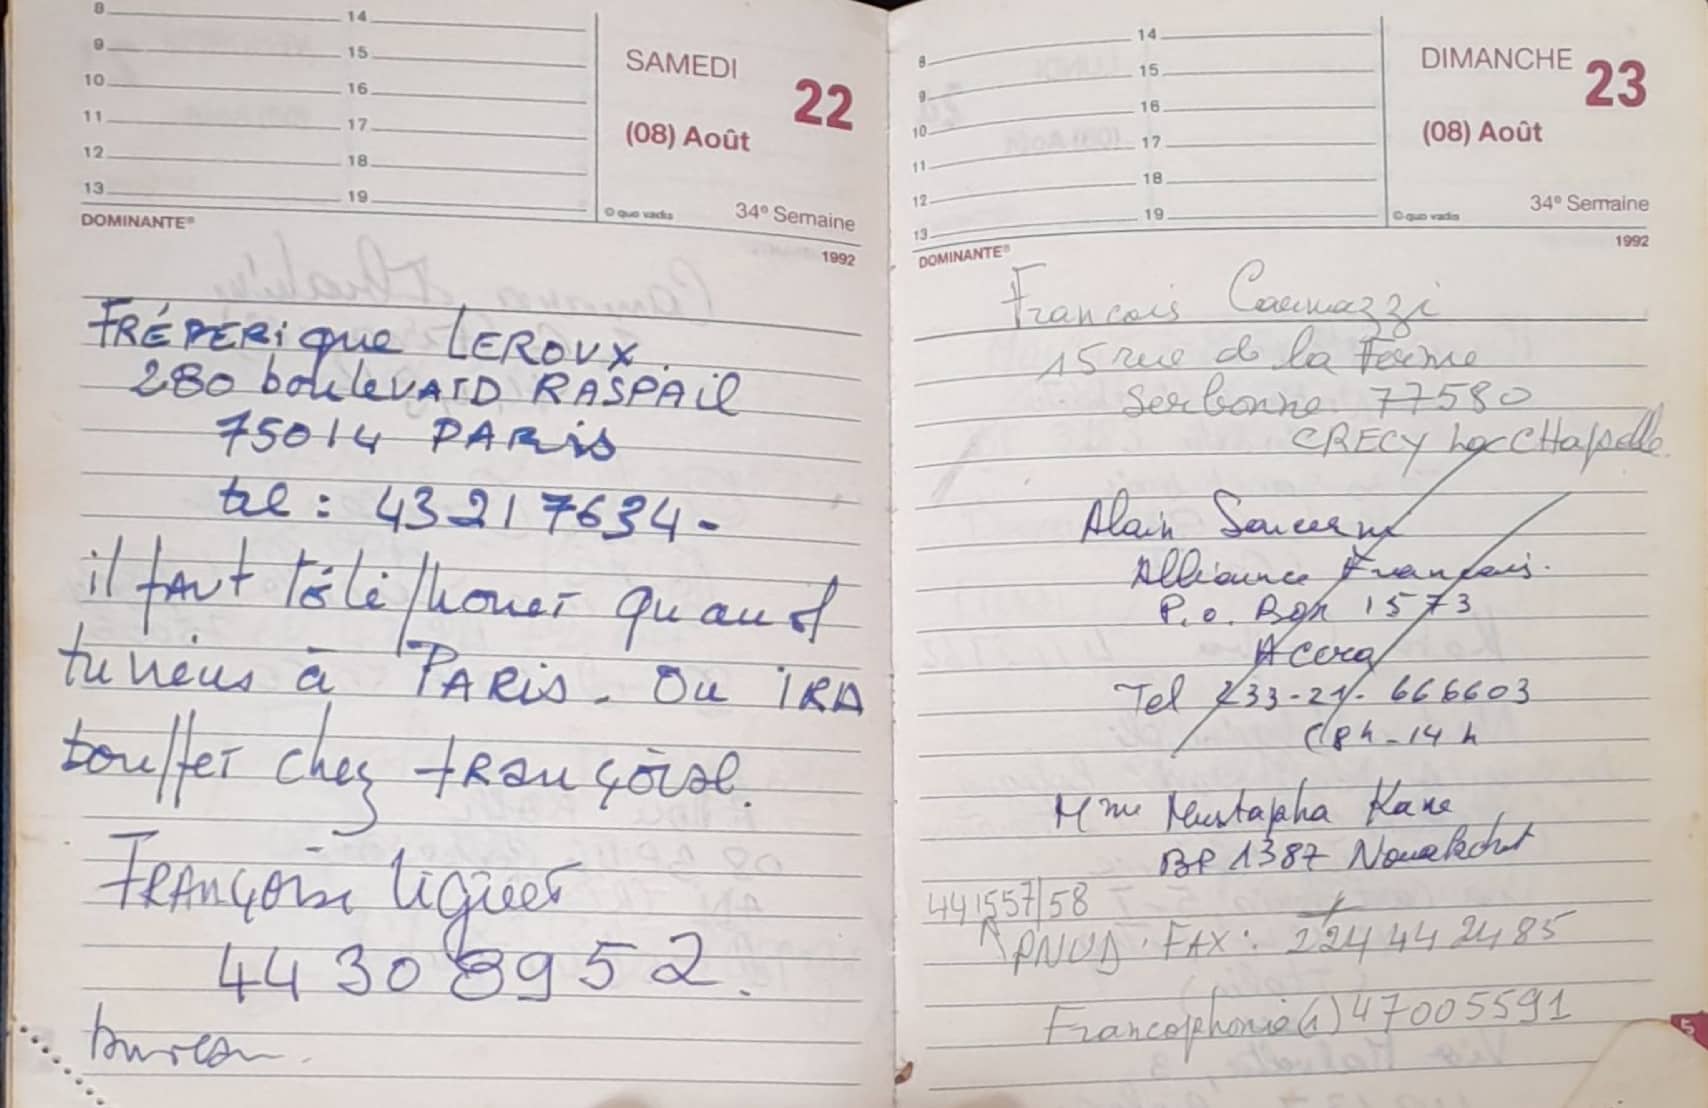 8 14
9 15
10 16
11 17
12 18
13 19
SAMEDI 22
(08) Août
34e Semaine
© quo vadis
DOMINANTE®
1992
FRÉDERique LEROUX.
280 boulevard RASPAIL
75014 PARIS
tel : 43217634-
il faut téléphoner quand
tu viens à PARIS. On IRA
bouffer chez Françoise.
Françoise
44308952.
bureau.
8 14
9 15
10 16
11 17
12 18
13 19
DIMANCHE 23
(08) Août
34e Semaine
© quo vadis
DOMINANTE®
1992
Francois
15 rue de la Ferme
Serbonne 77580
CRECY La CHapelle
Alain
Alliance Français.
P.o. Box 1573
Accra
Tel 233-21- 666603
(8h-14h
Mme Mustapha Kane
BP 1387 Nouakchott
441557/58
PNUD. FAX: 224442485
Francophonie (1) 47005591
5